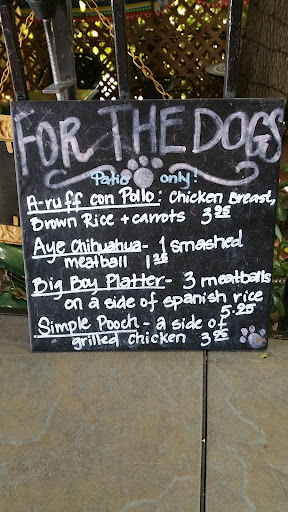 FOR THE DOGS
Patio only!
A-ruff con Pollo: Chicken Breast,
Brown Rice + carrots 3.25
Aye Chihuahua- 1 smashed
meatball 1.25
Big Boy Platter- 3 meatballs
on a side of spanish rice
5.25
Simple Pooch - a side of
grilled chicken 3.25